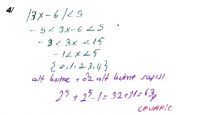 4)
|3x-6|<9
-9<3x-6<9
-3<3x<15
-1<x<5
{0,1,2,3,4}
alt küme + öz alt küme sayısı
2⁵ + 2⁵ - 1 = 32 + 31 = 63
CEVAPTIR